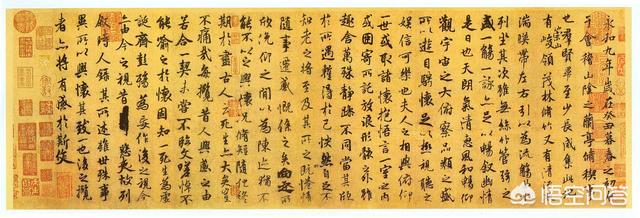 永和九年歲在癸丑暮春之初會
于會稽山陰之蘭亭脩禊事
也羣賢畢至少長咸集此地
有崇山峻領茂林脩竹又有清流激
湍暎帶左右引以為流觴曲水
列坐其次雖無絲竹管弦之
盛一觴一詠亦足以暢叙幽情
是日也天朗氣清惠風和暢仰
觀宇宙之大俯察品類之盛
所以遊目騁懷足以極視聽之
娛信可樂也夫人之相與俯仰
一世或取諸懷抱悟言一室之內
或因寄所託放浪形骸之外雖
趣舍萬殊靜躁不同當其欣
於所遇暫得於己怏然自足不
知老之將至及其所之既惓情
隨事遷感慨係之矣向之所
欣俛仰之閒以為陳迹猶不
能不以之興懷況脩短隨化終
期於盡古人云死生亦大矣豈
不痛哉每攬昔人興感之由
若合一契未嘗不臨文嗟悼不
能喻之於懷固知一死生為虛
誕齊彭殤為妄作後之視今
亦由今之視昔悲夫故列
敘時人錄其所述雖世殊事
異所以興懷其致一也後之攬
者亦將有感於斯文
悟空问答